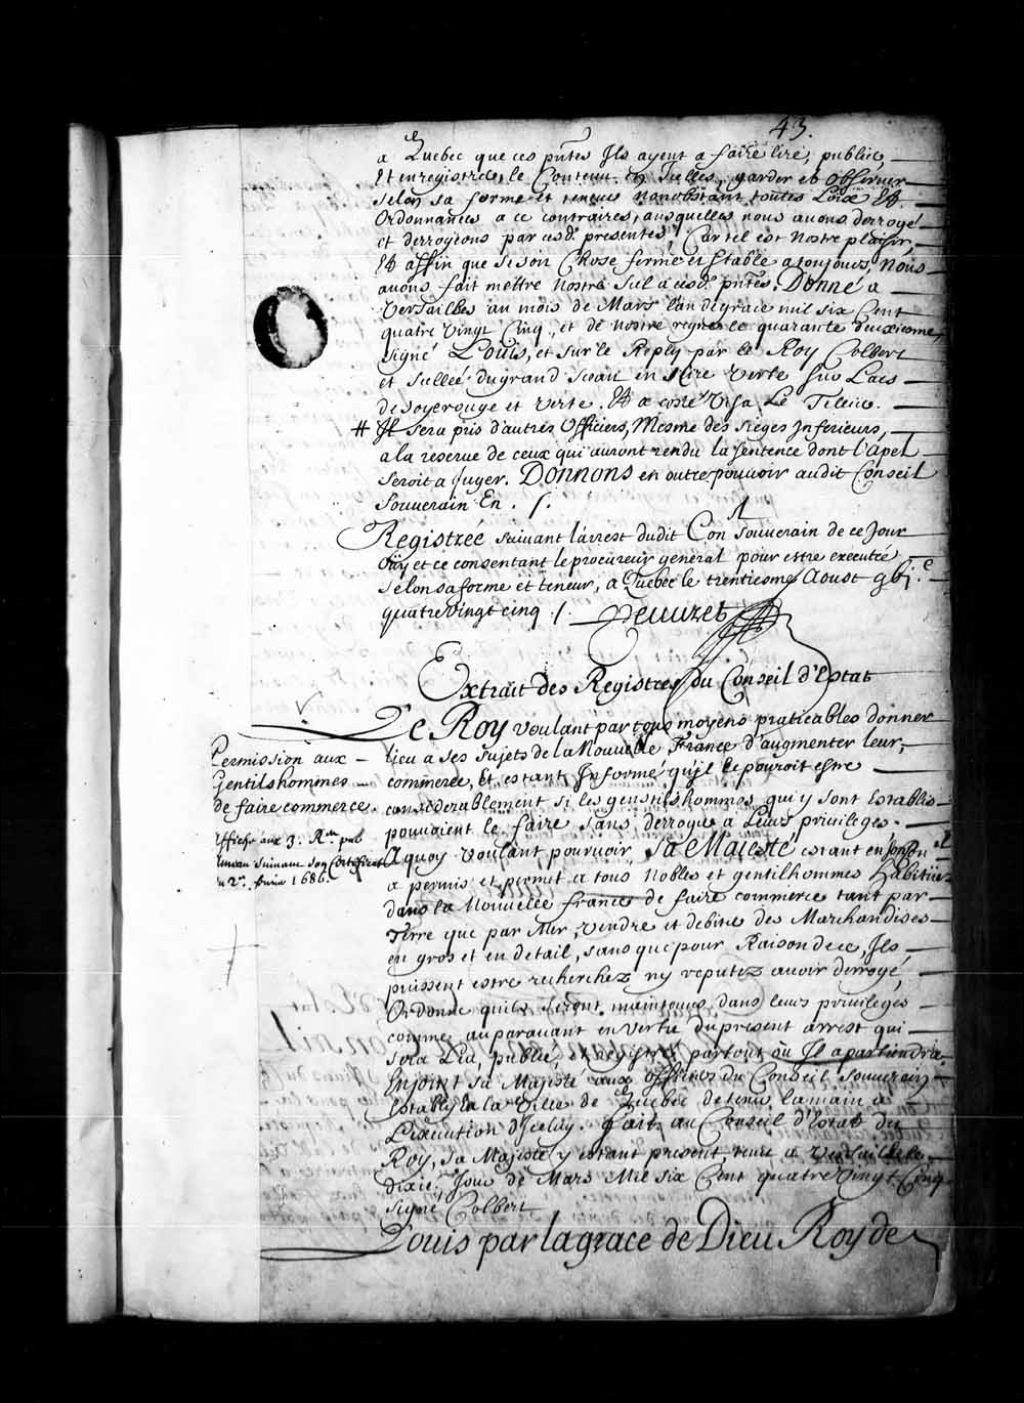 43.
a Quebec que ces pñtes Ils ayent a faire lire, publier,
Et enregistrer, le Contenu en Icelles, garder et observer
selon sa forme et teneur nonobstant toutes Loix Et
Ordonnances a ce contraires, ausquelles nous avons derrogé
et derrogeons par cesd. presentes, Car tel est Nostre plaisir,
Et affin que ce soit Chose ferme et stable a toujours, Nous
avons fait mettre Nostre Scel a cesd. pñtes. Donné a
Versailles au mois de Mars l'an de grace mil six Cent
quatre vingt Cinq, et de nostre regne le quarante deuxieme,
signé Louis, et sur le Reply par le Roy Colbert
et scellée du grand sceau en cire verte sur Lacs
de soye rouge et verte. Et a costé Visa Le Tellier.
# Il sera pris d'autres officiers, Mesme des sieges Inferieurs,
a la reserve de ceux qui auront rendu la sentence dont l'apel
seroit a Juger. Donnons en outre pouvoir audit Conseil
souverain En . /.
Registrée suivant l'arrest dudit Con.el souverain de ce Jour
Ouy et ce consentant le procureur general pour estre executée
selon sa forme et teneur, a Quebec le trentiesme Aoust gbj.c
quatre vingt cinq ./. Peuuret
Extrait des Registres du Conseil d'Estat
Le Roy voulant par tous moyens praticables donner
lieu a ses sujets de la Nouvelle France d'augmenter leur
commerce, Et estant Informé qu'il le pouroit estre
considerablement si les gentilshommes qui y sont Establis
pouvoient le faire sans derroger a Leurs privileges.
A quoy voulant pourvoir Sa Majesté estant en son Con.el
a permis et permet a tous Nobles et gentilhommes Habituez
dans la Nouvelle france de faire commerce tant par
Terre que par Mer, vendre et debiter des Marchandises
en gros et en detail, sans que pour Raison de ce, Ils
puissent estre recherchez ny reputez avoir derrogé,
Ordonne qu'ils seront maintenus dans leurs privileges
comme auparavant en vertu du present arrest qui
sera Leu, publié, et registré partout ou Il apartiendra.
Enjoint Sa Majesté aux officiers du Conseil souverain
Estably En la Ville de Quebec de tenir la main a
L'execution d'Iceluy. Fait au Conseil d'Estat du
Roy, sa Majesté y estant present, tenu a Versailles le
dixie. Jour de Mars Mil six Cent quatre vingt Cinq
signé Colbert
Louis par la grace de Dieu Roy de
Permission aux
Gentilshommes
de faire commerce.
Affiché aux
suivant son Certificat
du 2e. 1686.